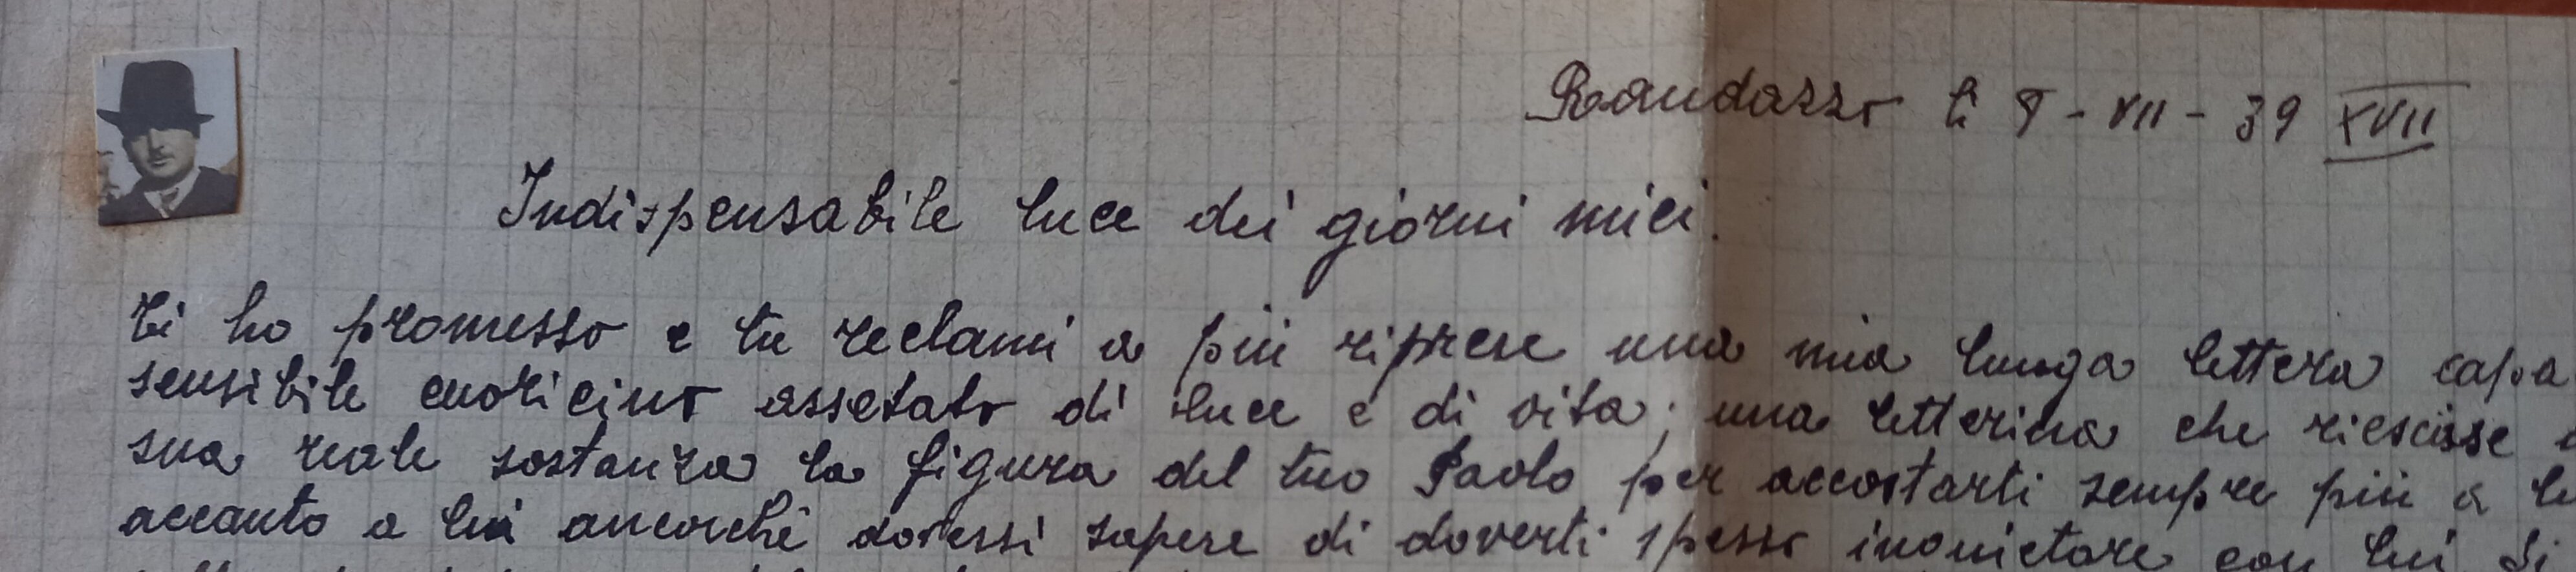 Randazzo li 8 - VII - 39 XVII
Indispensabile luce dei giorni miei.
Ti ho promesso e tu reclami a più riprese una mia lunga lettera capa
sensibile cuoricino assetato di luce e di vita; una letterina che riescisse
sua reale sostanza la figura del tuo Paolo per accostarti sempre più a lu
accanto a lui ancorché dovessi sapere di doverti spesso inquietare con lui. Si